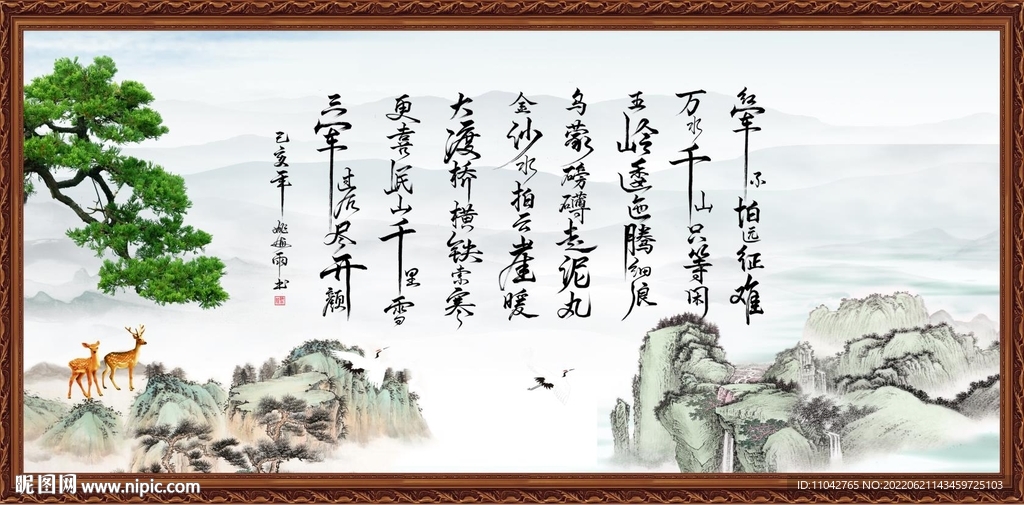 红军不怕远征难
万水千山只等闲
五岭逶迤腾细浪
乌蒙磅礴走泥丸
金沙水拍云崖暖
大渡桥横铁索寒
更喜岷山千里雪
三军过后尽开颜
己亥年 雨书
昵图网 www.nipic.com
ID:11042765 NO:20220621143459725103